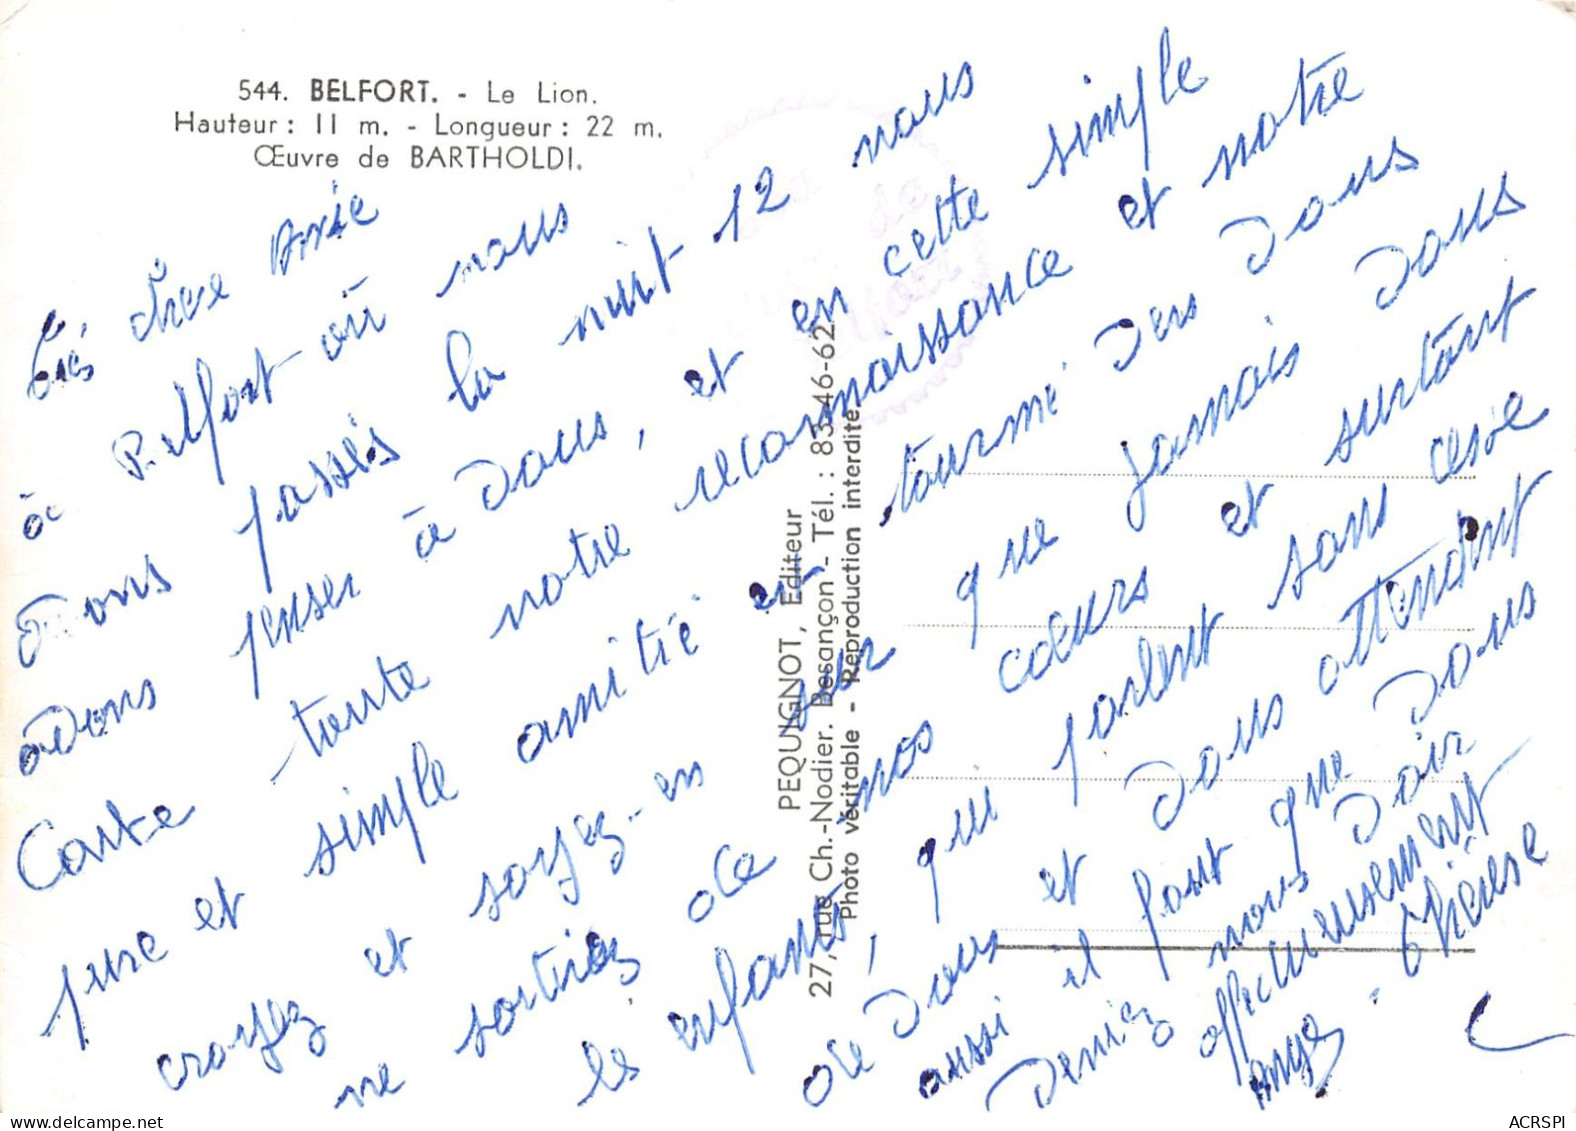 544. BELFORT. - Le Lion.
Hauteur : 11 m. - Longueur : 22 m.
Œuvre de BARTHOLDI.
chère Amie
à Belfort où nous
avons passés la nuit 12 nous
avons penser à vous, et en cette simple
Carte toute notre reconnaissance et notre
pure et simple amitié et tourmé vers vous
croyez et soyez-en sur que jamais vous
ne sortirez de nos cœurs et surtout
les enfants, qui parlent sans cesse
de vous et vous attendent
aussi il faut que vous
veniez nous voir
affectueusement
Ange - Thérèse
PEQUIGNOT, Editeur
27, rue Ch.-Nodier. Besançon - Tél. : 83-46-62
Photo véritable - Reproduction interdite.
www.delcampe.net
ACRSPI